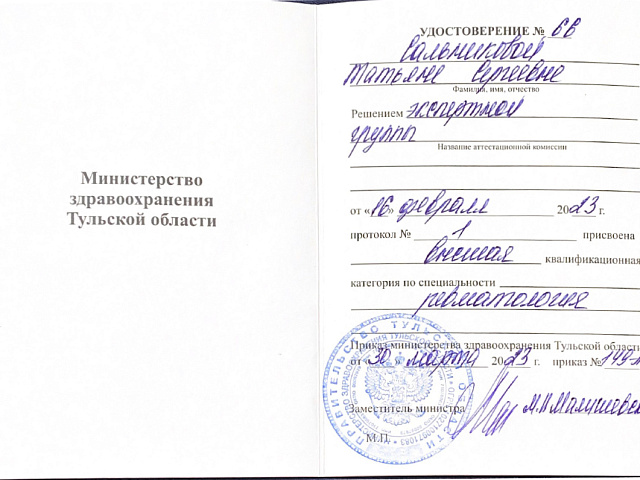 Министерство
здравоохранения
Тульской области
УДОСТОВЕРЕНИЕ № 66
Сальниковой
Татьяне Сергеевне
Фамилия, имя, отчество
Решением экспертной
группы
Название аттестационной комиссии
от «16» февраля 2023 г.
протокол № 1 присвоена
высшая квалификационная
категория по специальности
ревматология
Приказ министерства здравоохранения Тульской области
от «30» марта 2023 г. приказ № 199-
Заместитель министра
М.П.
ПРАВИТЕЛЬСТВО ТУЛЬСКОЙ ОБЛАСТИ